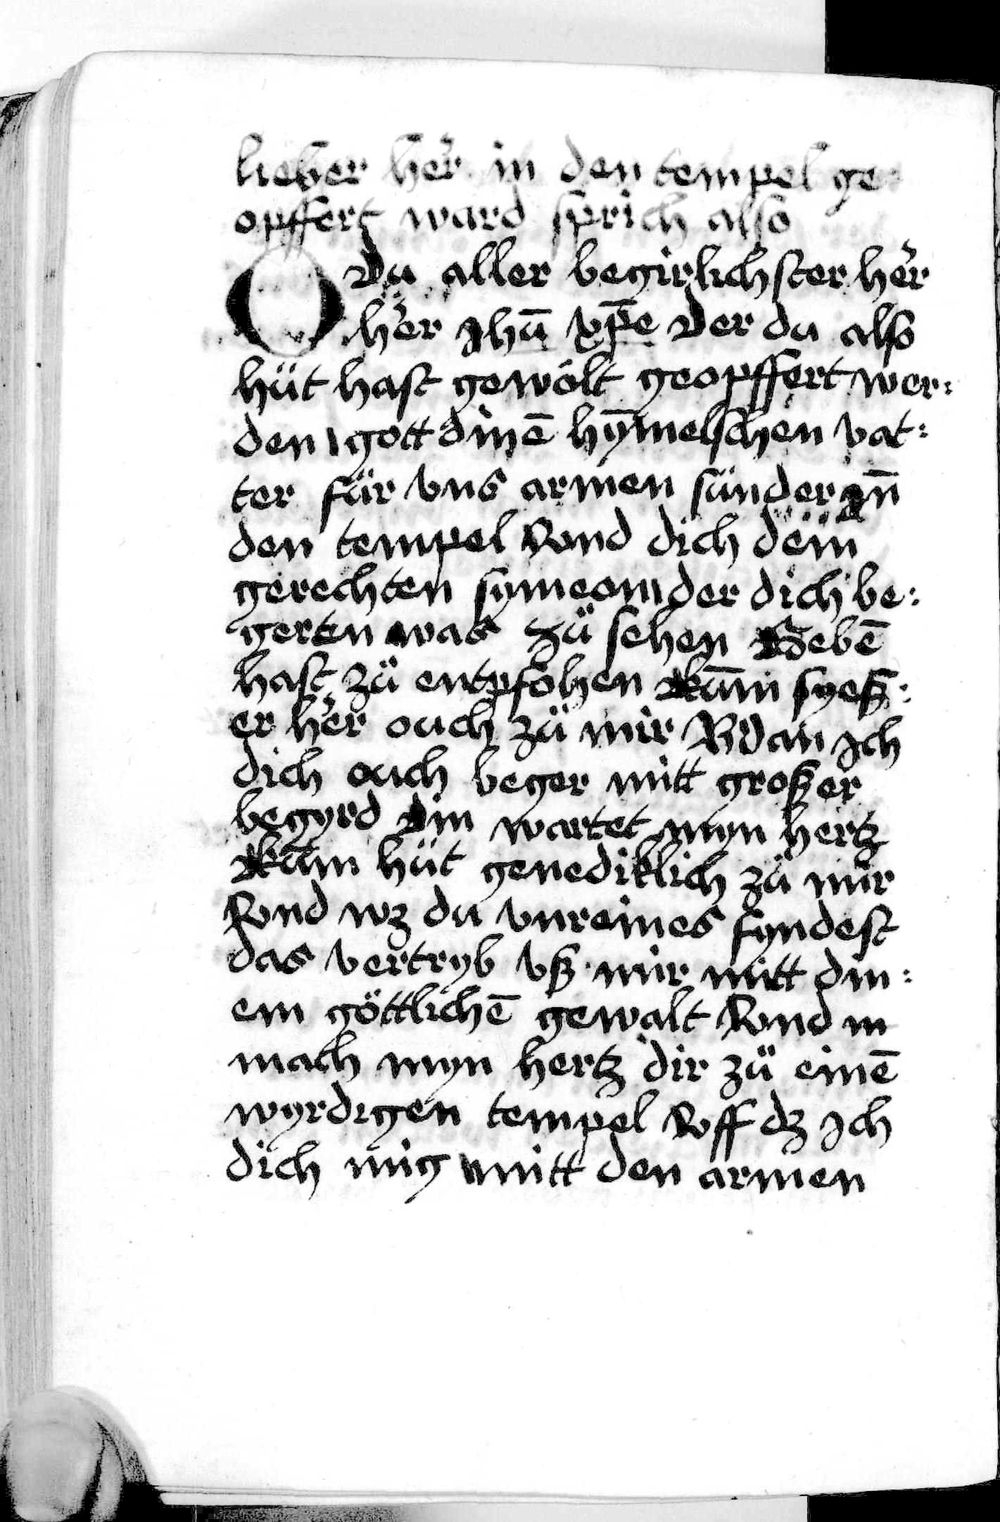 lieber her in den tempel ge⸗
opffert ward sprich also
O Du aller begirlichster her
her Jhū xp̄e Der du also
hüt hast gewölt geopffert wer⸗
den gott dinē hȳmelschen vat⸗
ter für vns armen sünder jn̄
den tempel Vnd dich dem
gerechten symeom der dich be⸗
gerten was zů sehen Gebē
hast zů entpfohen Kūm syeß⸗
er her ouch zů mir Wan Jch
dich ouch beger mitt großer
begyrd Din wartet myn hertz
Kūm hüt genediklich zů mir
Vnd wz du vnreines fyndest
das vertryb vß mir mitt din⸗
em göttlichē gewalt Vnd m
mach myn hertz dir zů einē
wyrdigen tempel Vff dz Jch
dich mig mitt den armen